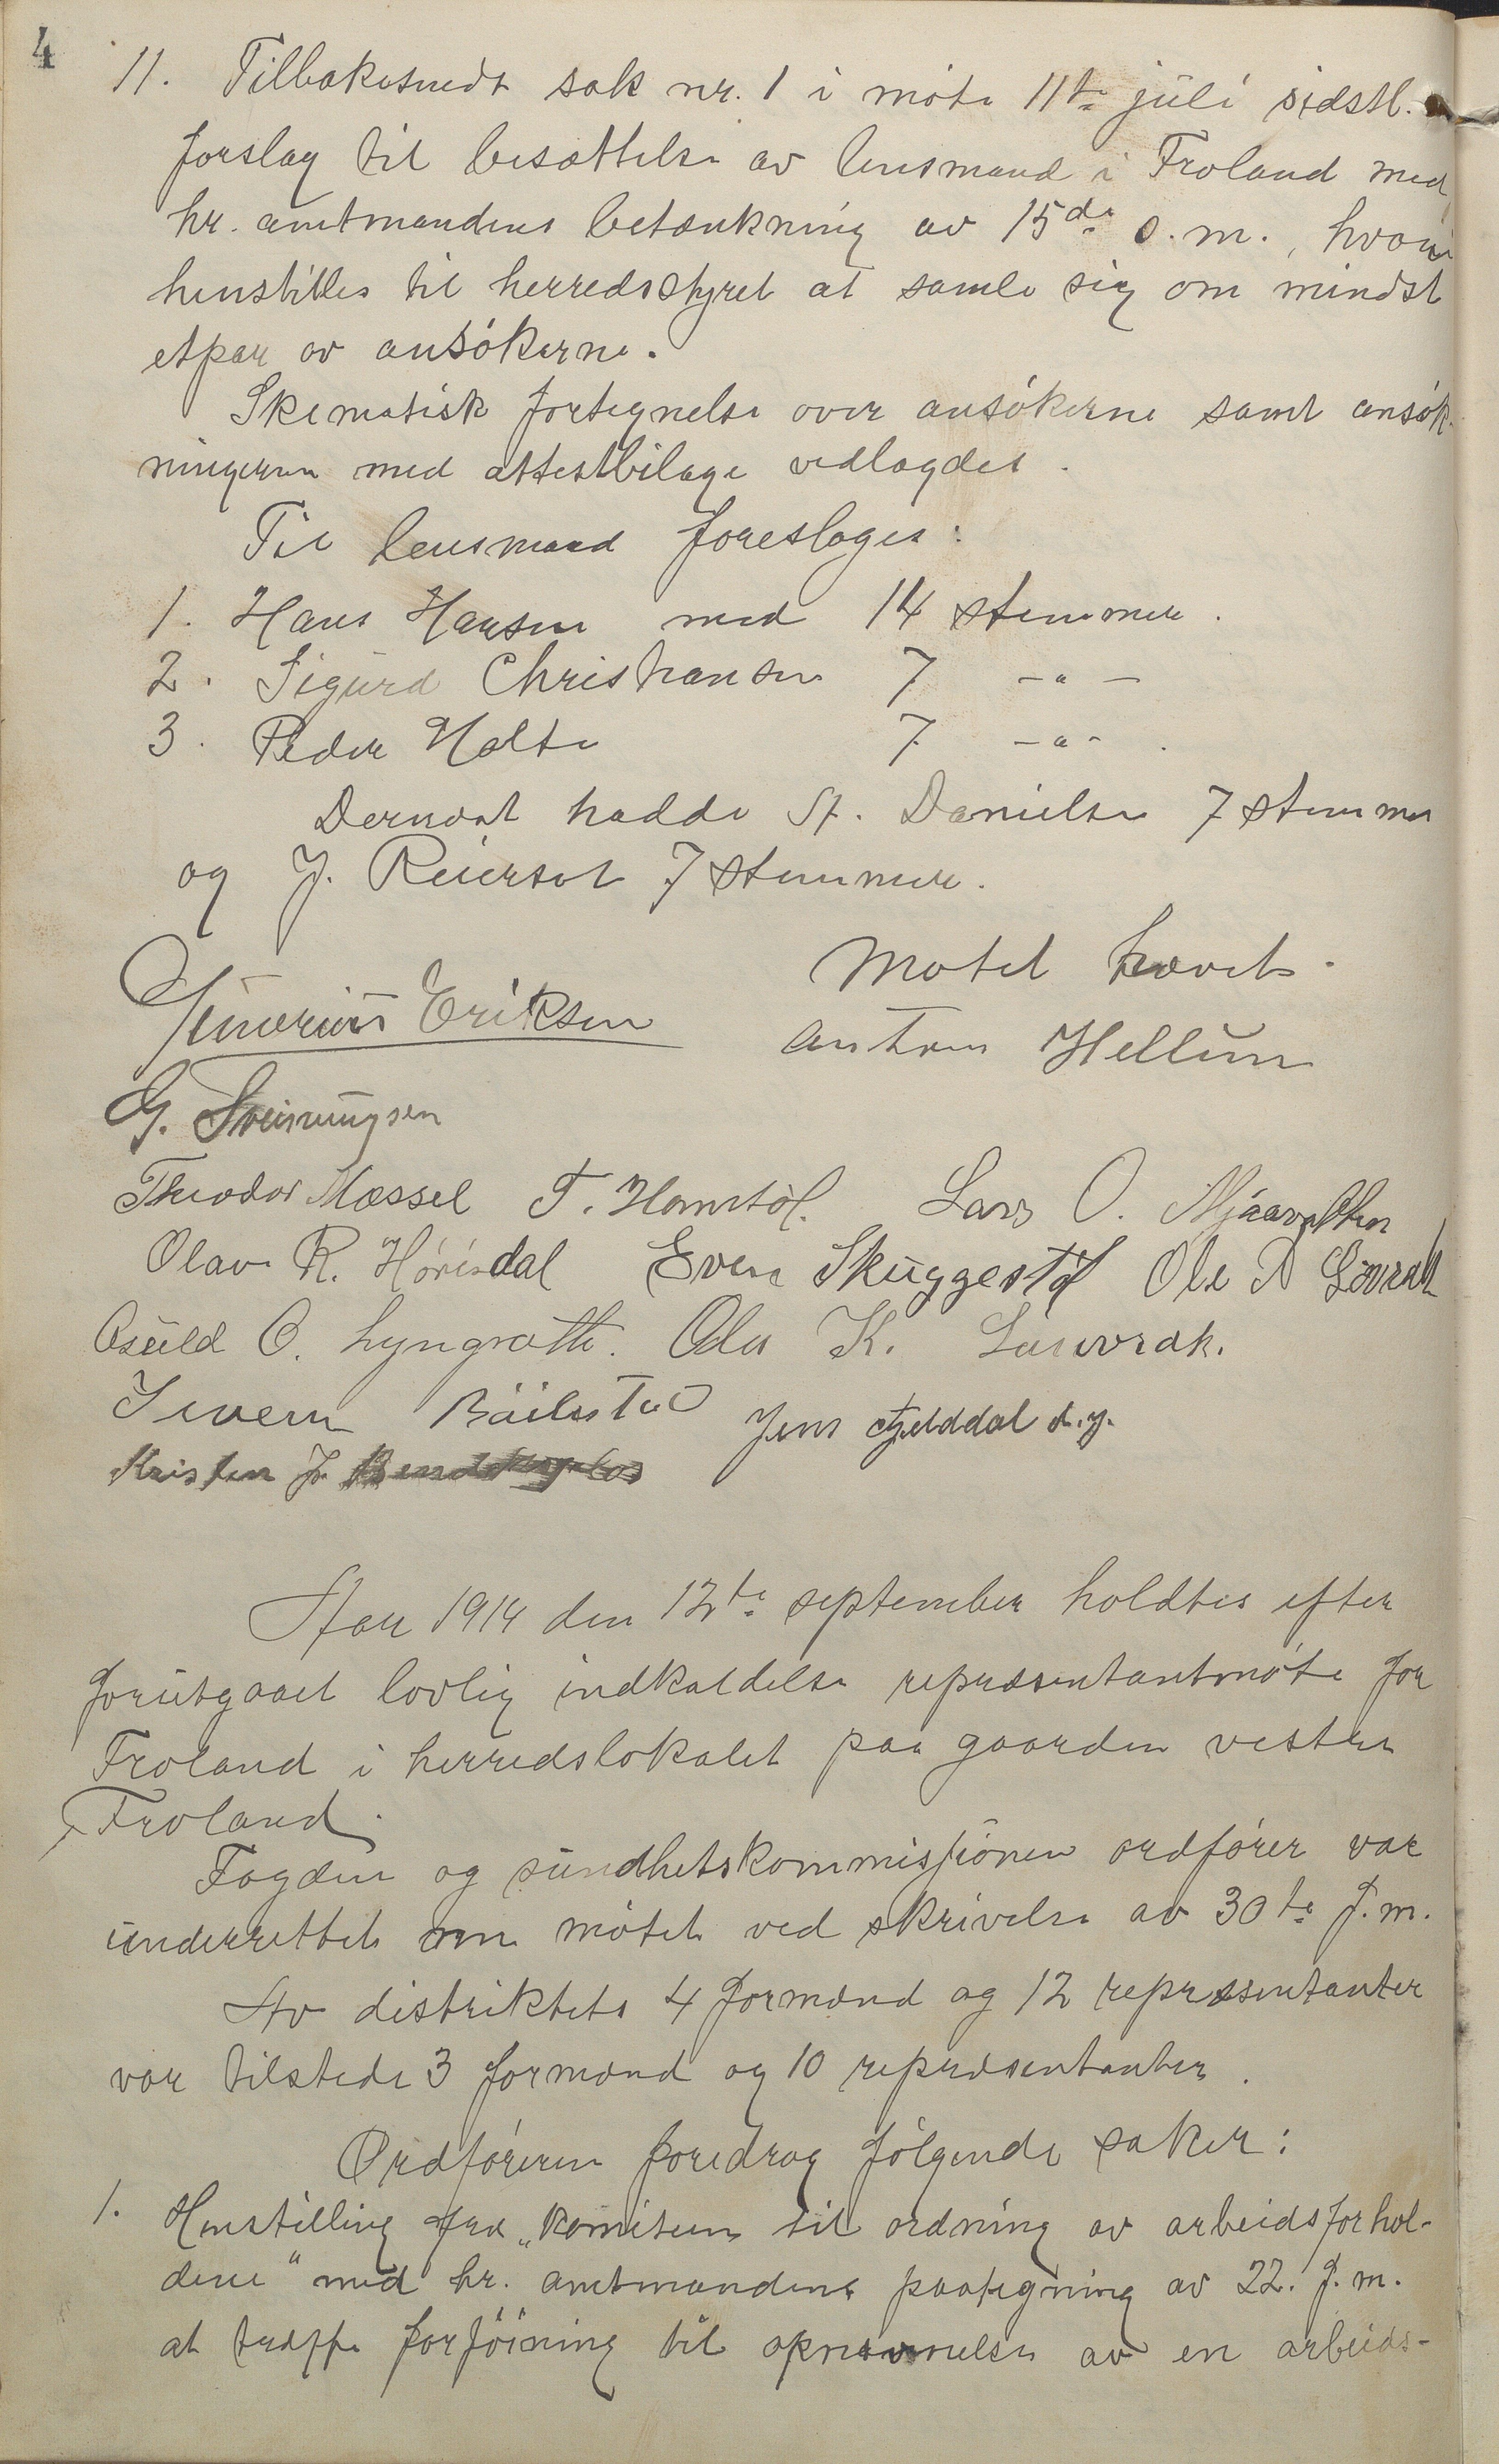 4
11. Tilbakesendt sak nr. 1 i møte 11te juli sidstl.
forslag til besættelse av lensmand i Froland med
hr. amtmandens betænkning av 15de s. m., hvori
henstilles til herredsstyret at samle sig om mindst
etpar av ansøkerne.
Skematisk fortegnelse over ansøkerne samt ansøk-
ningerne med attestbilage vedlagdes.
Til lensmand foresloges:
1. Hans Hansen med 14 stemmer.
2. Sigurd Christiansen 7 -"-
3. Peder Holte 7 -"-.
Dernæst hadde St. Danielsen 7 stemmer
og J. Reiersøl 7 stemmer.
Møtet hævet.
Severius Eriksen
Anton Hellum
G. Sveinungsen
Theodor Messel T. Homstøl. Lars O. Mjaavatten
Olav R. Hørisdal Even Skuggestøl Ole A Løvrak
Osuld O. Lyngrøth. Ola K. Lauvrak.
Iver Bøilestad Jens Gjelddal d. y.
Kristen J.
Aar 1914 den 12te september holdtes efter
forutgaaet lovlig indkaldelse repræsentantmøte for
Froland i herredslokalet paa gaarden vestre
Froland.
Fogden og sundhetskommissionen ordfører var
underrettet om møtet ved skrivelse av 30te f. m.
Av distriktets 4 formænd og 12 repræsentanter
var tilstede 3 formænd og 10 repræsentanter.
Ordføreren foredrog følgende saker:
1. Henstilling fra „komiteen til ordning av arbeidsforhol-
dene" med hr. amtmandens paategning av 22. f. m.
at træffe forføining til opnævnelse av en arbeids-